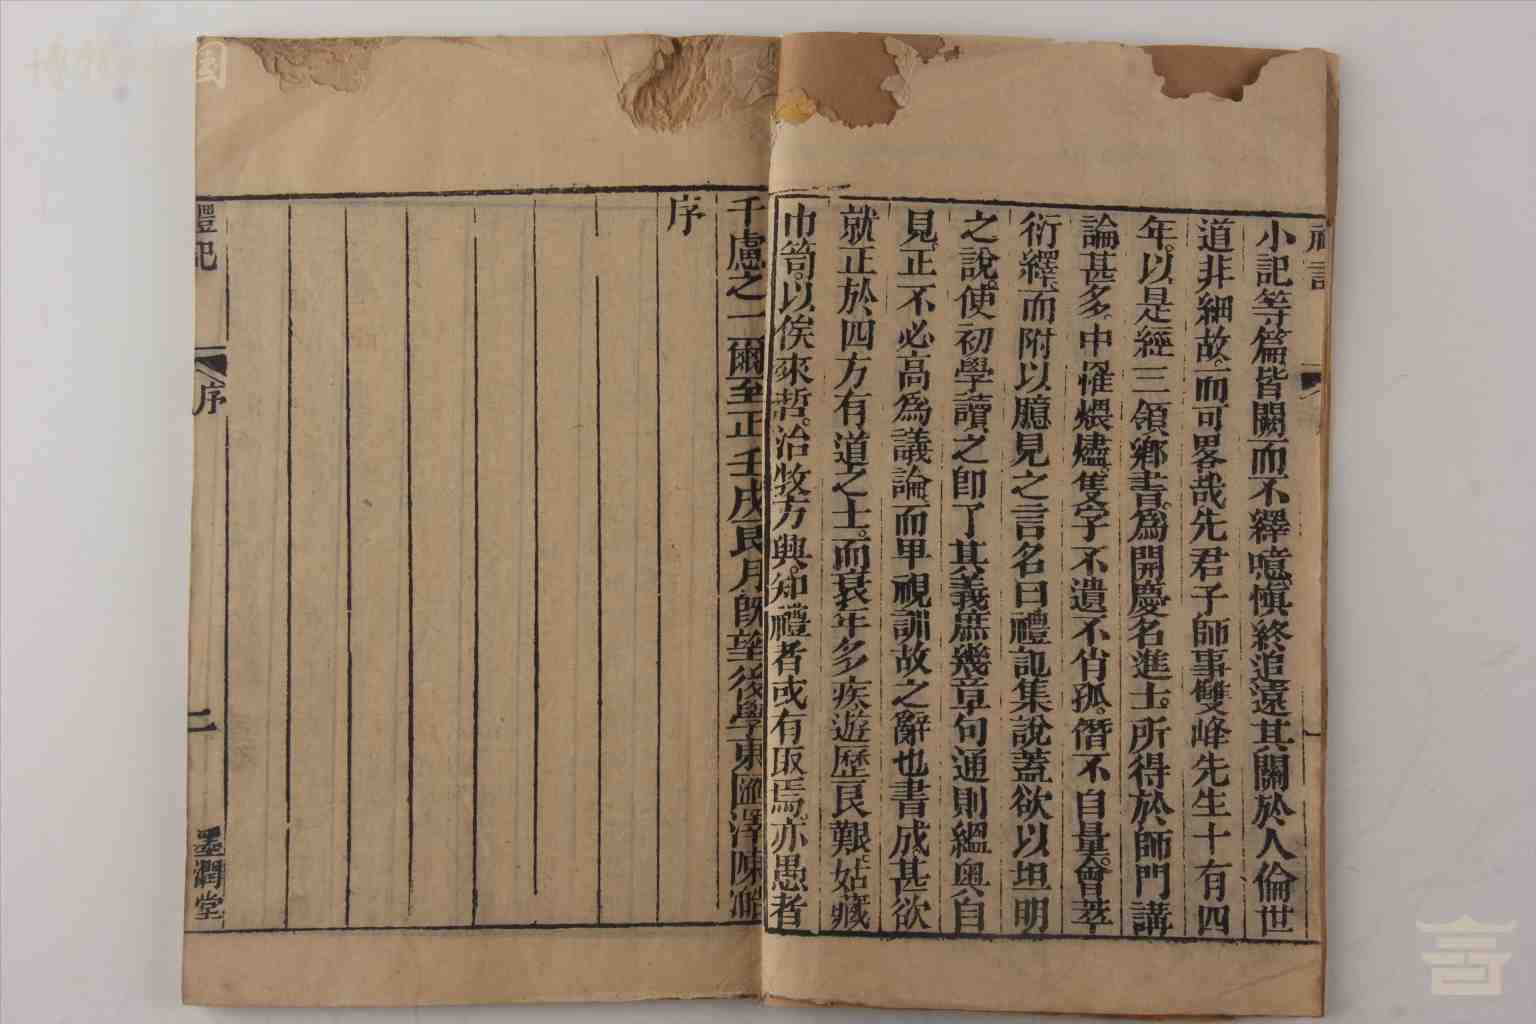 小記等篇皆闕而不釋噫愼終追遠其關於人倫世
道非細故而可畧哉先君子師事雙峰先生十有四
年以是經三領鄉書爲開慶名進士所得於師門講
論甚多中罹煨燼隻字不遺不肖孤僭不自量會萃
衍繹而附以臆見之言名曰禮記集說蓋欲以坦明
之說使初學讀之卽了其義庶幾章句通則縕奥自
見正不必高爲議論而甲視訓故之辭也書成甚欲
就正於四方有道之士而衰年多疾遊歷良艱姑藏
巾笥以俟來哲治牧方興知禮者或有取焉亦愚者
千慮之一爾至正壬戌良月旣望後學東匯澤陳澔
序
禮記
序
二
墨潤堂